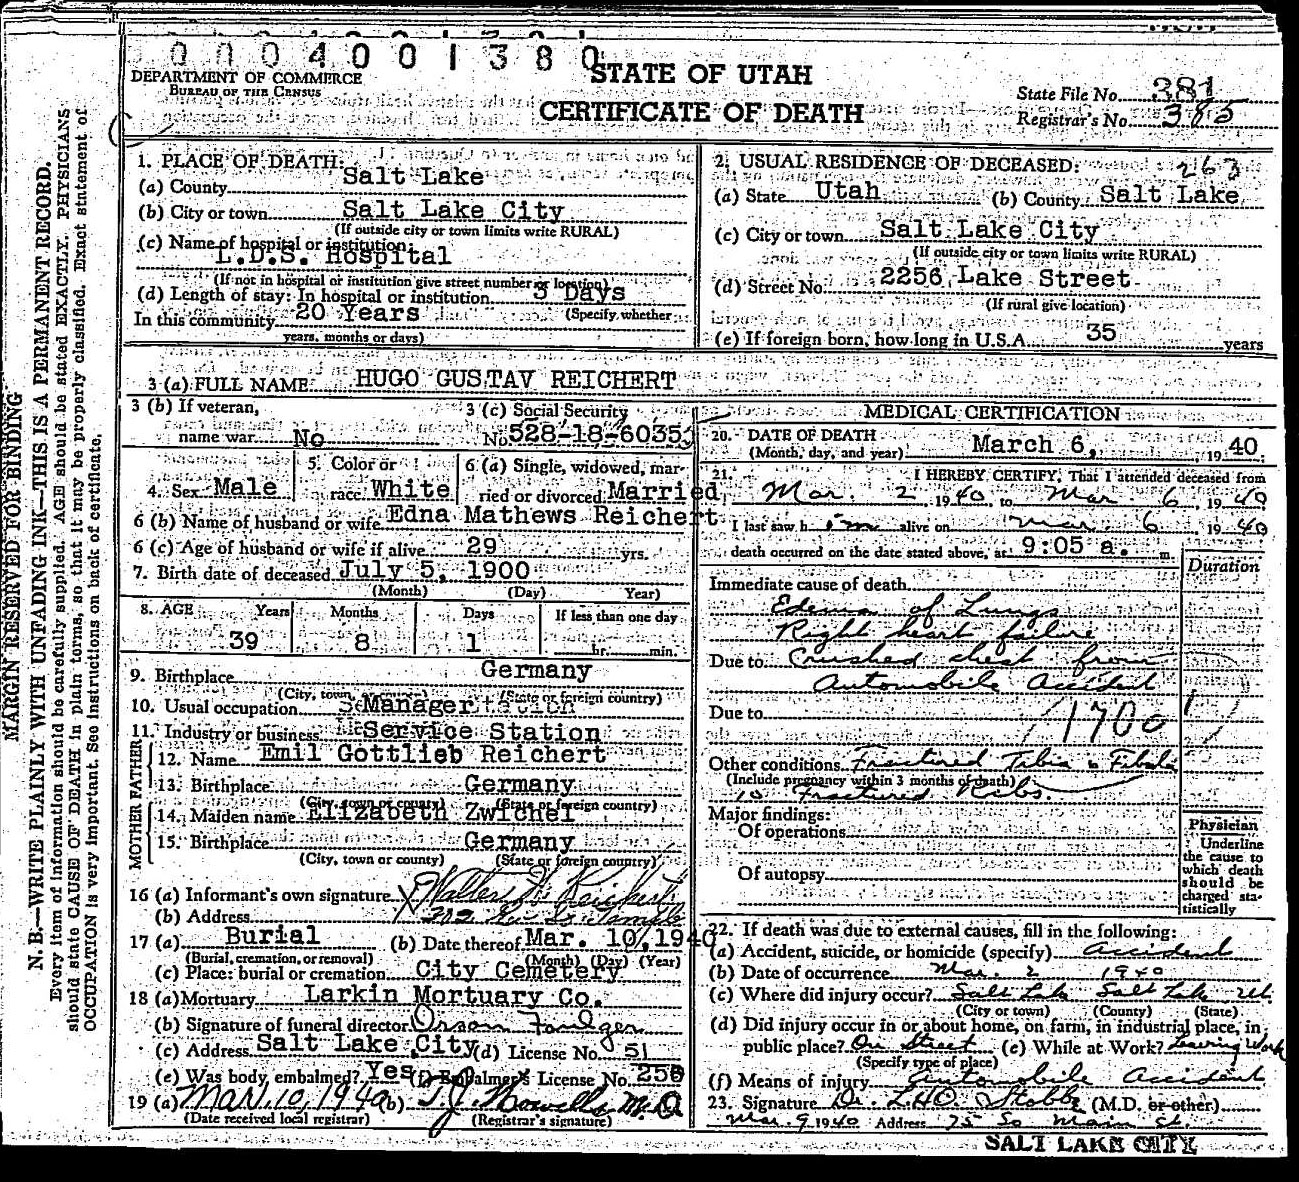 0004001380
DEPARTMENT OF COMMERCE
BUREAU OF THE CENSUS
STATE OF UTAH
CERTIFICATE OF DEATH
State File No. 381
Registrar's No. 385
MARGIN RESERVED FOR BINDING
N. B.—WRITE PLAINLY WITH UNFADING INK—THIS IS A PERMANENT RECORD.
Every item of information should be carefully supplied. AGE should be stated EXACTLY. PHYSICIANS
should state CAUSE OF DEATH in plain terms, so that it may be properly classified. Exact statement of
OCCUPATION is very important. See instructions on back of certificate.
1. PLACE OF DEATH:
(a) County Salt Lake
(b) City or town Salt Lake City
(If outside city or town limits write RURAL)
(c) Name of hospital or institution:
L.D.S. Hospital
(If not in hospital or institution give street number or location)
(d) Length of stay: In hospital or institution 3 Days
In this community 20 Years (Specify whether
years, months or days)
2. USUAL RESIDENCE OF DECEASED: 263
(a) State Utah (b) County Salt Lake
(c) City or town Salt Lake City
(If outside city or town limits write RURAL)
(d) Street No. 2256 Lake Street
(If rural give location)
(e) If foreign born, how long in U.S.A. 35 years
3 (a) FULL NAME HUGO GUSTAV REICHERT
3 (b) If veteran, name war No
3 (c) Social Security No. 528-18-6035
4. Sex Male
5. Color or race White
6 (a) Single, widowed, married or divorced Married
6 (b) Name of husband or wife Edna Mathews Reichert
6 (c) Age of husband or wife if alive 29 yrs.
7. Birth date of deceased July 5, 1900
(Month) (Day) Year)
8. AGE Years Months Days If less than one day
39 8 1 hr. min.
9. Birthplace Germany
(City, town, or county) (State or foreign country)
10. Usual occupation Manager
11. Industry or business Service Station
FATHER
12. Name Emil Gottlieb Reichert
13. Birthplace Germany
(City, town or county) (State or foreign country)
MOTHER
14. Maiden name Elizabeth Zwichel
15. Birthplace Germany
(City, town or county) (State or foreign country)
16 (a) Informant's own signature Reichert
(b) Address Temple
17 (a) Burial (b) Date thereof Mar. 10, 1940
(Burial, cremation, or removal) (Month) (Day) (Year)
(c) Place: burial or cremation City Cemetery
18 (a) Mortuary Larkin Mortuary Co.
(b) Signature of funeral director Orson Foulger
(c) Address Salt Lake City (d) License No. 51
(e) Was body embalmed? Yes (f) Embalmer's License No. 256
19 (a) Mar. 10, 1940 (b) T.J. Howells M.D.
(Date received local registrar) (Registrar's signature)
MEDICAL CERTIFICATION
20. DATE OF DEATH
(Month, day, and year) March 6, 1940
21. I HEREBY CERTIFY, That I attended deceased from
Mar. 2 1940 to Mar. 6, 1940
I last saw him alive on Mar. 6 1940
death occurred on the date stated above, at 9:05 a. m.
Duration
Immediate cause of death
Edema of Lungs
Right heart failure
Due to Crushed chest from
Automobile Accident
Due to 170c
Other conditions Fractured Tibia & Fibula
(Include pregnancy within 3 months of death)
10 Fractured Ribs.
Major findings:
Of operations
Of autopsy
Physician
Underline
the cause to
which death
should be
charged sta-
tistically
22. If death was due to external causes, fill in the following:
(a) Accident, suicide, or homicide (specify) Accident
(b) Date of occurrence Mar. 2 1940
(c) Where did injury occur? Salt Lake Salt Lake Ut.
(City or town) (County) (State)
(d) Did injury occur in or about home, on farm, in industrial place, in
public place? On Street (e) While at Work? Leaving Work
(Specify type of place)
(f) Means of injury Automobile Accident
23. Signature Dr. (M.D. or other)
Mar. 9 1940 Address 75 So Main St.
SALT LAKE CITY